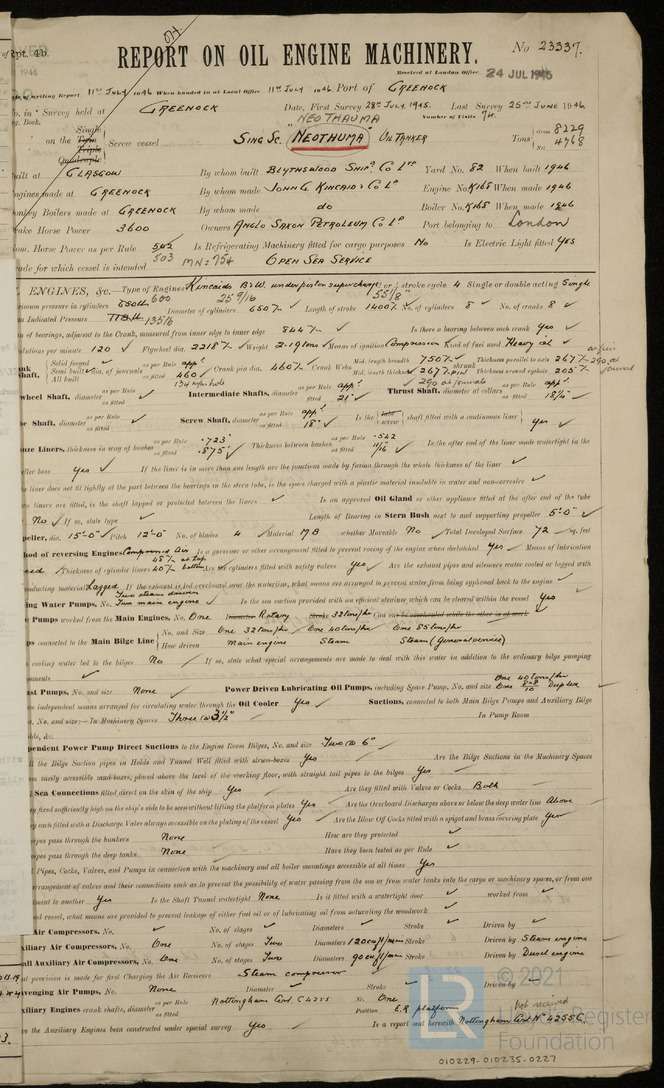 Rpt. 4b.
REPORT ON OIL ENGINE MACHINERY.
No 23337.
Received at London Office 24 JUL 1946
of writing Report 11th July 1946 When handed in at Local Office 11th July 1946 Port of GREENOCK
No. in Survey held at GREENOCK Date, First Survey 28th July 1945. Last Survey 25th JUNE 1946
Reg. Book. "NEOTHAUMA" Number of Visits 74.
on the Single Twin Triple Quadruple Screw vessel SING SC. "NEOTHUMA" OIL TANKER Tons Gross 8229 Net 4768
Built at GLASGOW By whom built BLYTHSWOOD SHIPG Co LTD Yard No. 82 When built 1946
Engines made at GREENOCK By whom made JOHN G. KINCAID & Co LD Engine No. K165 When made 1946
Donkey Boilers made at GREENOCK By whom made do Boiler No. K165 When made 1946
Brake Horse Power 3600 Owners ANGLO SAXON PETROLEUM Co LD Port belonging to London
Nom. Horse Power as per Rule 542 503 MN=754 Is Refrigerating Machinery fitted for cargo purposes No Is Electric Light fitted Yes
Trade for which vessel is intended OPEN SEA SERVICE
ENGINES, &c. Type of Engines Kincaids B&W. underpiston supercharge 2 or 4 stroke cycle 4 Single or double acting Single
Maximum pressure in cylinders 600 Diameter of cylinders 650 25 9/16 Length of stroke 1400 55 1/8" No. of cylinders 8 No. of cranks 8
Mean Indicated Pressure 135 lb
Span of bearings, adjacent to the Crank, measured from inner edge to inner edge 844 Is there a bearing between each crank Yes
Revolutions per minute 120 Flywheel dia. 2218 Weight 2.19 tons Means of ignition Compression Kind of fuel used Heavy oil
Solid forged Semi built All built dia. of journals as per Rule appd as fitted 460 Crank pin dia. 460 Crank Webs Mid. length breadth 750 Mid. length thickness 267 Thickness parallel to axis 267 Thickness around eyehole 205
Flywheel Shaft, diameter as per Rule as fitted Intermediate Shafts, diameter as per Rule appd as fitted 21" Thrust Shaft, diameter at collars as per Rule appd as fitted 18 1/2"
Tube Shaft, diameter as per Rule as fitted Screw Shaft, diameter as per Rule appd as fitted 18" Is the tube screw shaft fitted with a continuous liner Yes
Bronze Liners, thickness in way of bushes as per Rule .723" as fitted .875" Thickness between bushes as per Rule .542 as fitted 11/16" Is the after end of the liner made watertight in the
propeller boss Yes If the liner is in more than one length are the junctions made by fusion through the whole thickness of the liner
If the liner does not fit tightly at the part between the bearings in the stern tube, is the space charged with a plastic material insoluble in water and non-corrosive
If two liners are fitted, is the shaft lapped or protected between the liners Is an approved Oil Gland or other appliance fitted at the after end of the tube
No If so, state type Length of Bearing in Stern Bush next to and supporting propeller 5'-0"
Propeller, dia. 15'-0" Pitch 12'-0" No. of blades 4 Material MB whether Moveable No Total Developed Surface 72 sq. feet
Method of reversing Engines Compressed Air Is a governor or other arrangement fitted to prevent racing of the engine when declutched Yes Means of lubrication
Forced Thickness of cylinder liners 48 at top 40 bottom Are the cylinders fitted with safety valves Yes Are the exhaust pipes and silencers water cooled or lagged with
non-conducting material Lagged If the exhaust is led overboard near the waterline, what means are arranged to prevent water from being syphoned back to the engine
Cooling Water Pumps, No. Two steam driven Two main engine Is the sea suction provided with an efficient strainer which can be cleared within the vessel Yes
Bilge Pumps worked from the Main Engines, No. One Diameter Rotary Stroke 32 tons/hr Can one be overhauled while the other is at work
Pumps connected to the Main Bilge Line No. and Size One 32 tons/hr One 40 tons/hr One 85 tons/hr
How driven Main engine Steam Steam (General service)
Is the cooling water led to the bilges No If so, state what special arrangements are made to deal with this water in addition to the ordinary bilge pumping
arrangements
Ballast Pumps, No. and size None Power Driven Lubricating Oil Pumps, including Spare Pump, No. and size One 40 tons/hr One Duplex
Are two independent means arranged for circulating water through the Oil Cooler Yes Suctions, connected to both Main Bilge Pumps and Auxiliary Bilge
Pumps, No. and size:—In Machinery Spaces Three @ 3 1/2" In Pump Room
In Holds, &c.
Independent Power Pump Direct Suctions to the Engine Room Bilges, No. and size Two @ 6"
Are all the Bilge Suction pipes in Holds and Tunnel Well fitted with strum-boxes Yes Are the Bilge Suctions in the Machinery Spaces
led from easily accessible mud-boxes, placed above the level of the working floor, with straight tail pipes to the bilges Yes
Are all Sea Connections fitted direct on the skin of the ship Yes Are they fitted with Valves or Cocks Both
Are they fixed sufficiently high on the ship's side to be seen without lifting the platform plates Yes Are the Overboard Discharges above or below the deep water line Above
Are they each fitted with a Discharge Valve always accessible on the plating of the vessel Yes Are the Blow Off Cocks fitted with a spigot and brass covering plate Yes
What pipes pass through the bunkers None How are they protected
What pipes pass through the deep tanks None Have they been tested as per Rule
Are all Pipes, Cocks, Valves, and Pumps in connection with the machinery and all boiler mountings accessible at all times Yes
Is the arrangement of valves and their connections such as to prevent the possibility of water passing from the sea or from water tanks into the cargo or machinery spaces, or from one
compartment to another Yes Is the Shaft Tunnel watertight None Is it fitted with a watertight door worked from
If a wood vessel, what means are provided to prevent leakage of either fuel oil or of lubricating oil from saturating the woodwork
Main Air Compressors, No. No. of stages Diameters Stroke Driven by
Auxiliary Air Compressors, No. One No. of stages Two Diameters 120 cuft/min Stroke Driven by Steam engine
Small Auxiliary Air Compressors, No. One No. of stages Two Diameters 90 cuft/min Stroke Driven by Diesel engine
What provision is made for first Charging the Air Receivers Steam compressor
Scavenging Air Pumps, No. None Diameter Stroke Driven by
Auxiliary Engines crank shafts, diameter as per Rule as fitted Nottingham Cert. C4255 No. One Position E.R. platform
not received
Have the Auxiliary Engines been constructed under special survey Yes Is a report sent herewith Nottingham Cert. No. 4255C.
© 2021
LR
Lloyd's Register
Foundation
010229-010235-0227